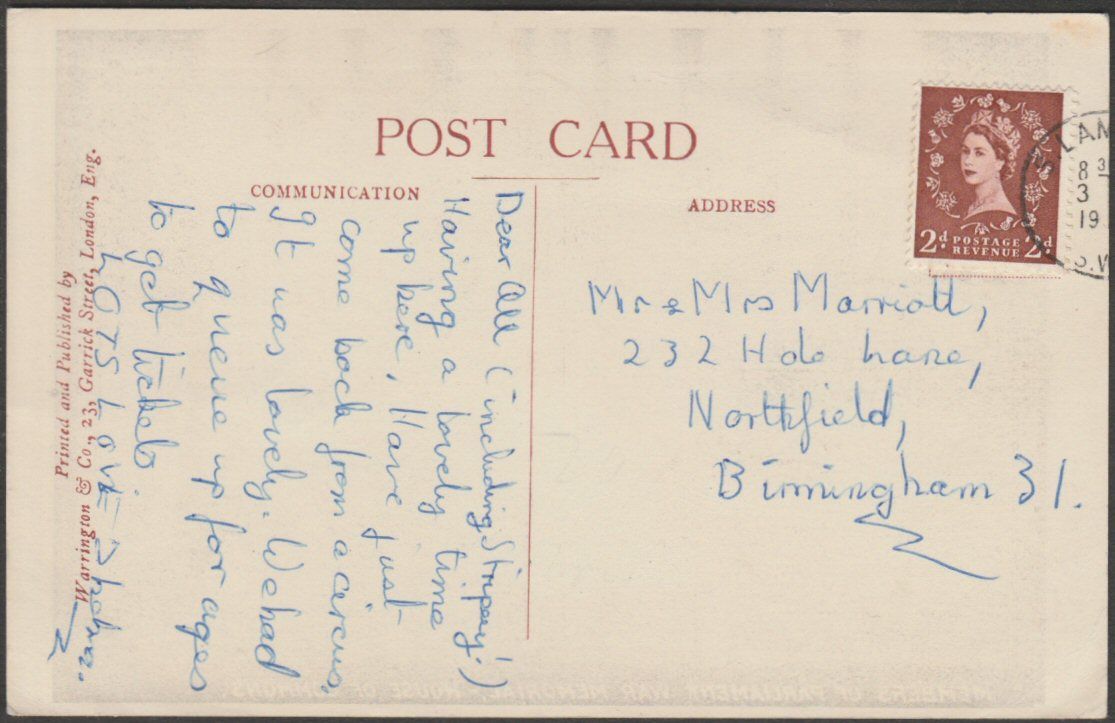 POST CARD
COMMUNICATION
ADDRESS
Dear All (including Stripey!)
Having a lovely time
up here, Have just
come back from a circus.
It was lovely. We had
to queue up for ages
to get tickets
LOTS Love
Printed and Published by
Warrington & Co., 23, Garrick Street, London, Eng.
2d POSTAGE REVENUE 2d
LAM
8 3
3
19
S.W
Mr & Mrs Marriott,
232 Hole Lane,
Northfield,
Birmingham 31.